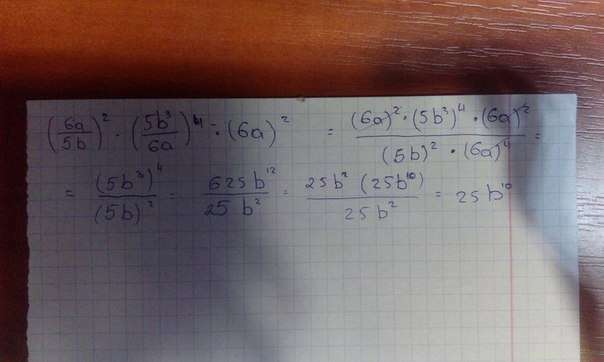 (6a/5b)² · (5b³/6a)⁴ · (6a)² = (6a)² · (5b³)⁴ · (6a)² / (5b)² · (6a)⁴ =
= (5b³)⁴ / (5b)² = 625b¹² / 25b² = 25b² (25b¹⁰) / 25b² = 25b¹⁰